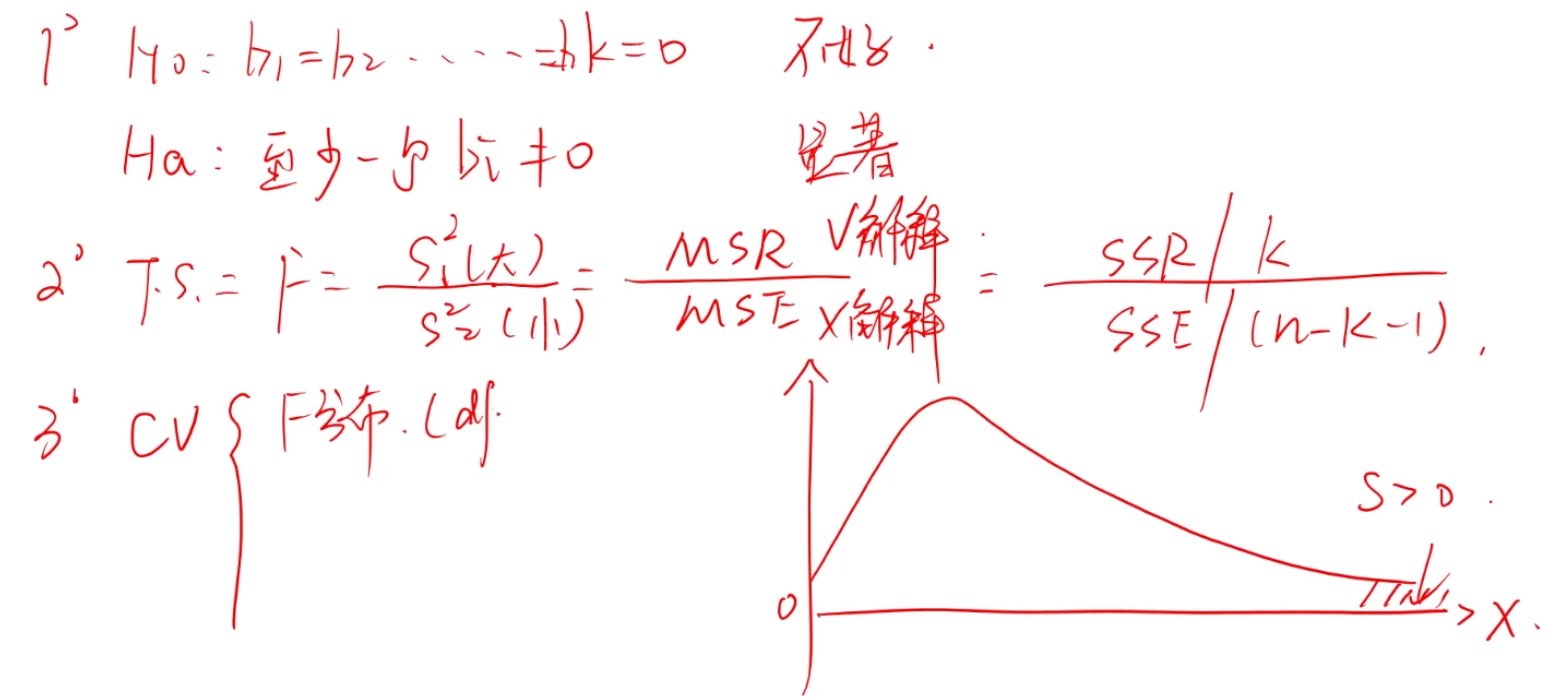 1° H0: b1=b2.....=bk=0 不用.
Ha: 至少一个 bi≠0 显著
2° T.S. = F = S₁²(大)/S₂²(小) = MSR V解释/MSE X解释 = SSR/k / SSE/(n-k-1).
3° CV { F分布. (df.
S>0.
0
>X.